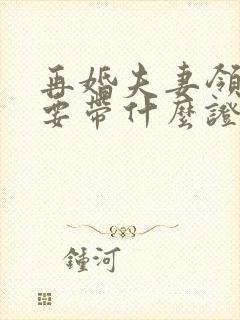 再婚夫妻領
要帶什麼證
鍾河